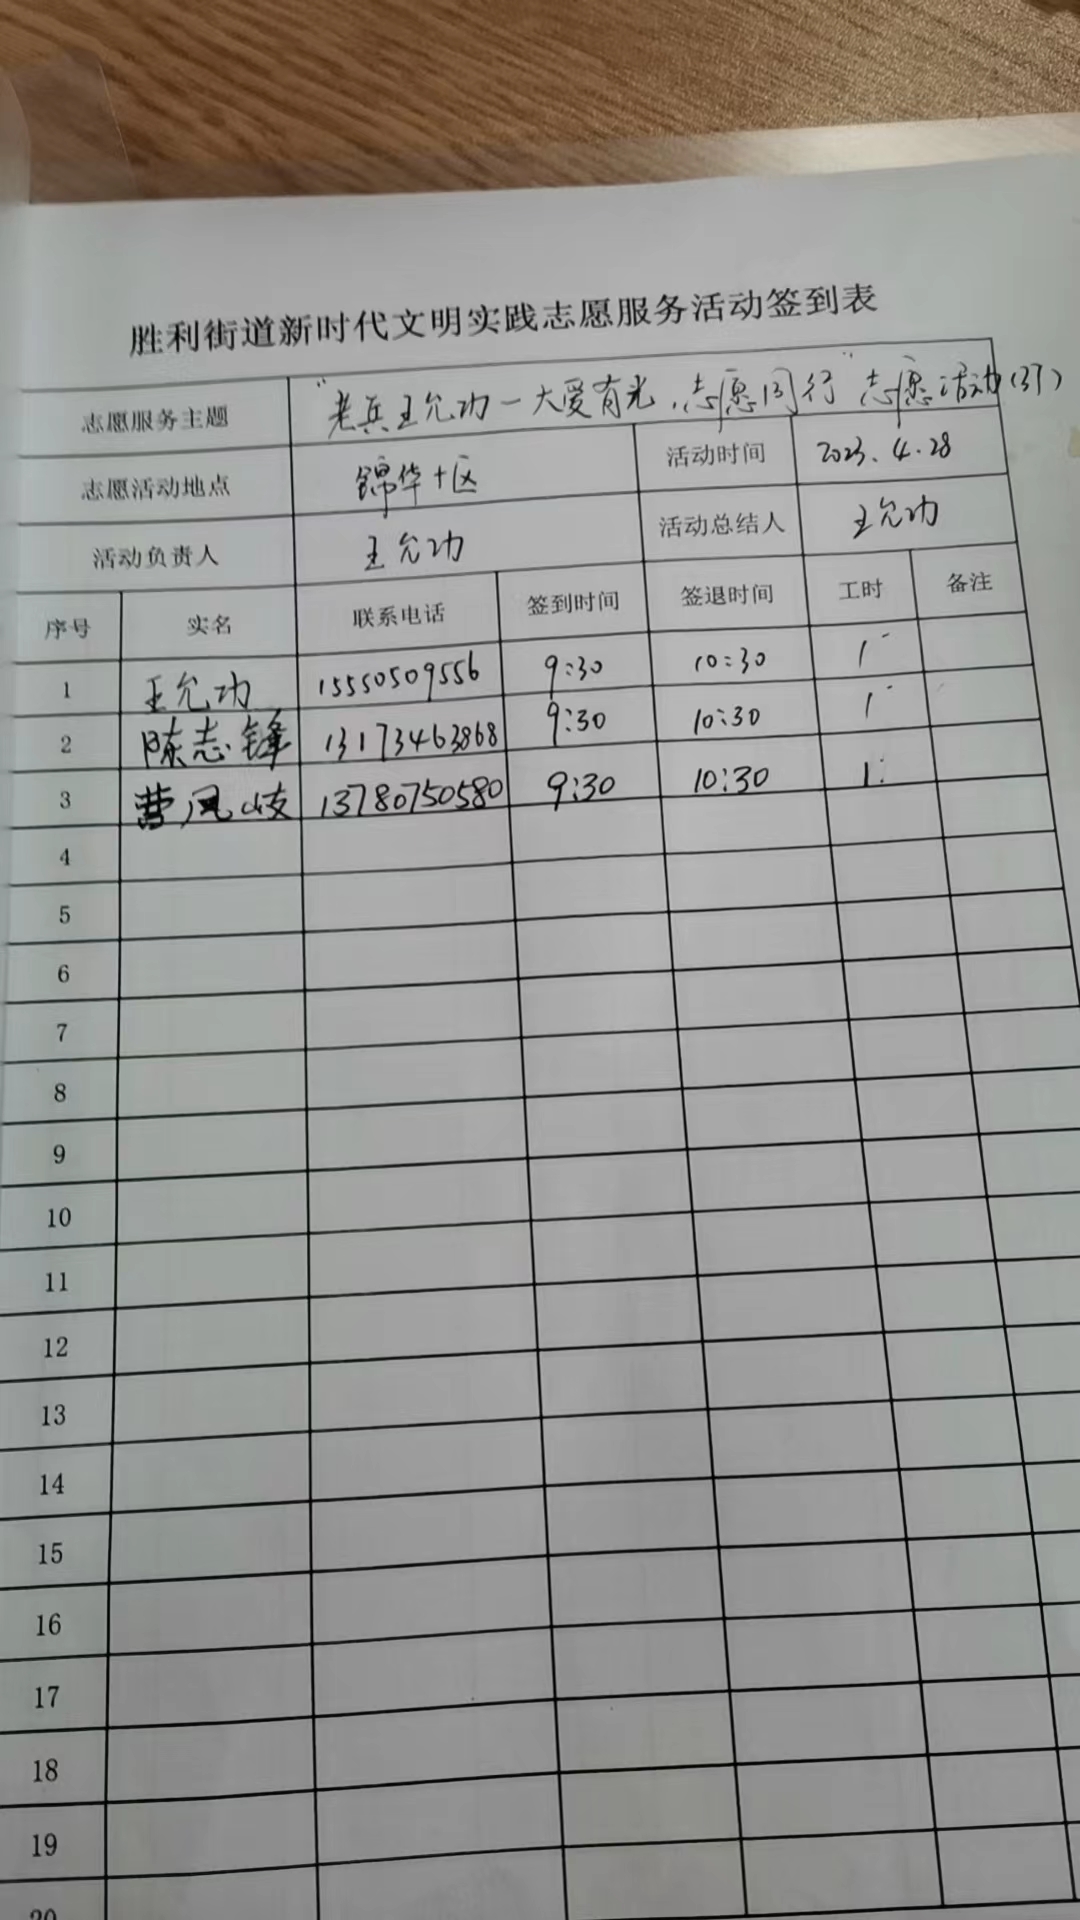 胜利街道新时代文明实践志愿服务活动签到表
志愿服务主题 “老兵王允功一大爱有光,志愿同行”志愿活动(3)
志愿活动地点 锦华十区 活动时间 2023.4.28
活动负责人 王允功 活动总结人 王允功
序号 实名 联系电话 签到时间 签退时间 工时 备注
1 王允功 15550509556 9:30 10:30 1
2 陈志锋 13173463868 9:30 10:30 1
3 曹凤岐 13780750580 9:30 10:30 1
4
5
6
7
8
9
10
11
12
13
14
15
16
17
18
19
20